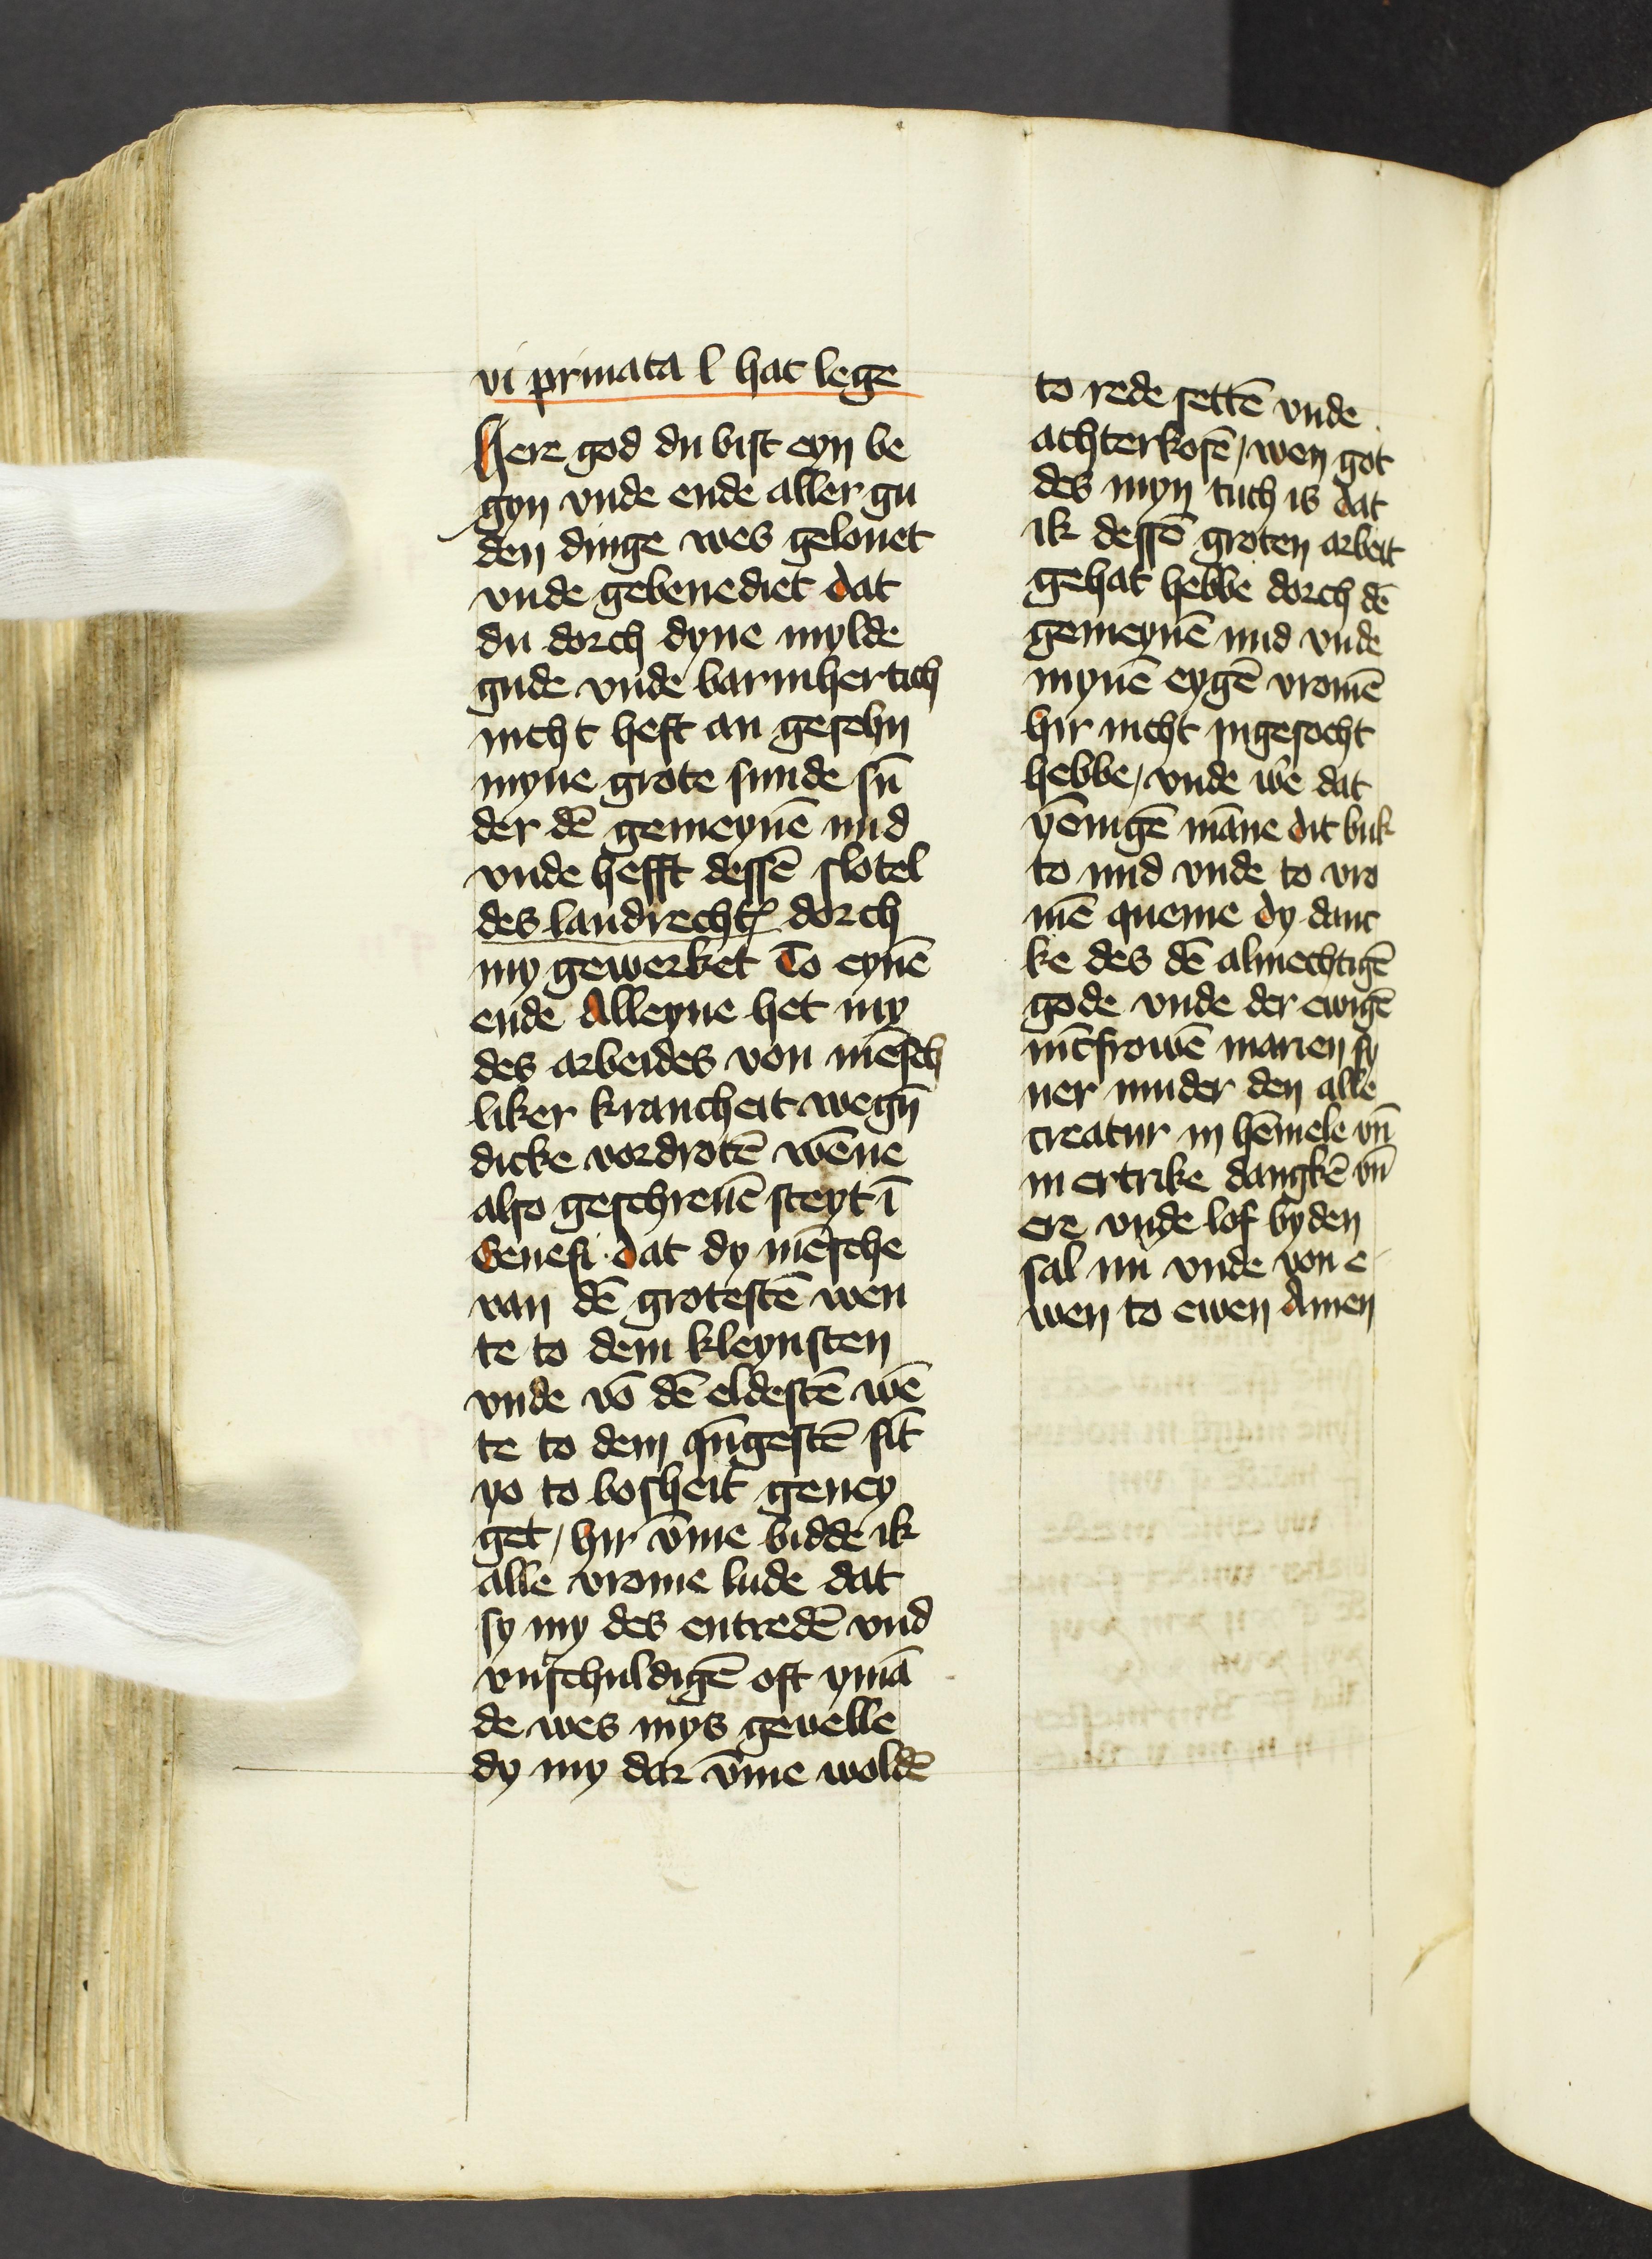 vi priuata l hac lege
Here god du bist eyn be
gyn vnde ende aller gu
den dinge wes gelouet
vnde gebenediet dat
du dorch dyne mylde
gude vnde barmhertich
nicht heft an gesehn
myne grote sunde sū
der dē gemeynē nud
vnde hefft dessē slotel
des landrechtꝭ dorch
my gewerket To eynē
ende Alleyne het my
des arbeides von mēsch
liker krancheit wegn̄
dicke vordrotē wēne
also geschreuē steyt ī
Genesi dat dy mēsche
van dē grotestē wen
te to dem kleynsten
vnde vō dē eldestē wē
te to dem yūgestē sīt
yo to bosheit geney
get / hir v̄me bidde ik
alle vrome lude dat
sy my des entredē vnd
vnschuldigē oft ymā
de wes mys geuelle
dy my dar v̄me woldē
to rede settē vnde
achterkosē / wen got
des myn tuch is dat
ik dessē groten arbeit
gehat hebbe dorch dē
gemeynē nud vnde
mynē eygē vromē
hir nicht jngesocht
hebbe / vnde wē dat
yēnigē māne dit buk
to nud vnde to vro
mē queme dy danc
ke des dē almechtigē
gode vnde der ewigē
iūcfrowē marien sy
ner muder den alle
creatur in hēmele vn̄
in ertrike dangkē vn̄
ere vnde lof byden
sal nu vnde von e
wen to ewen Amen